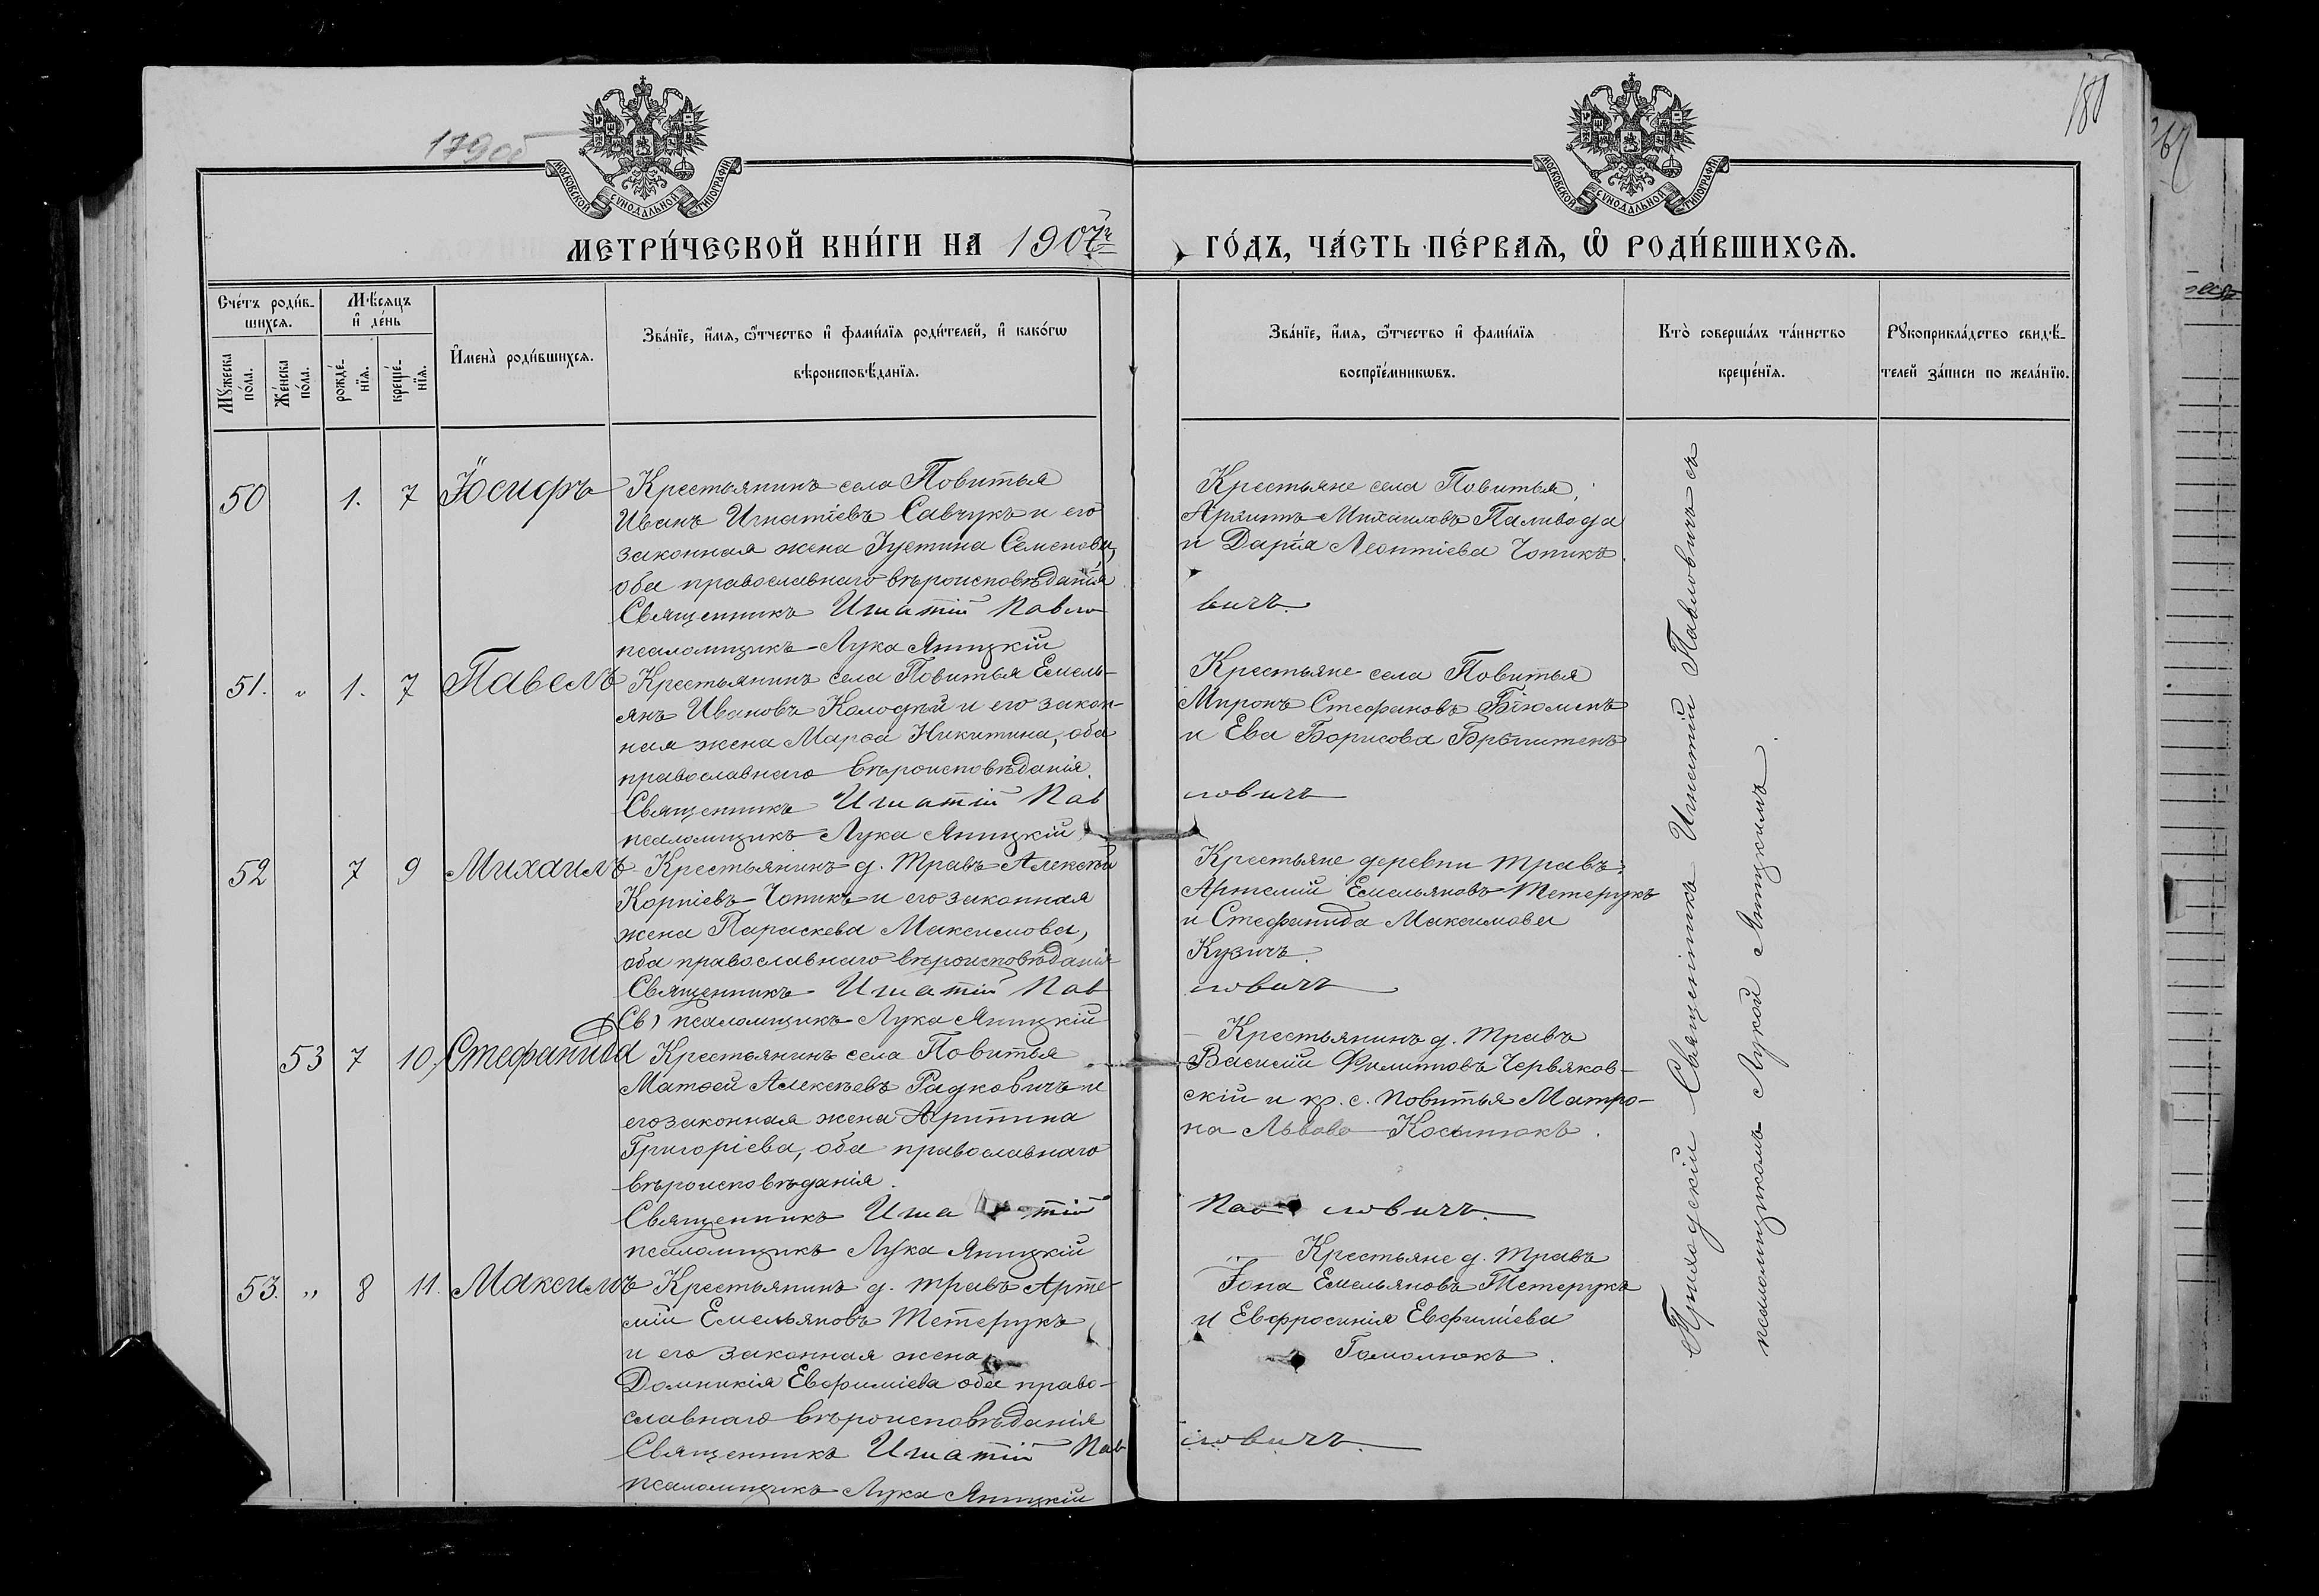 179об
180
МОСКОВСКОЙ СѴНОДАЛЬНОЙ ТИПОГРАФІИ
МОСКОВСКОЙ СѴНОДАЛЬНОЙ ТИПОГРАФІИ
МЕТРИ́ЧЕСКОЙ КНИ́ГИ НА 1907 ГО́ДЪ, ЧА́СТЬ ПЕ́РВАѦ, Ѡ҆ РОДИ́ВШИХСѦ.
Сче́тъ роди́в-
шихсѧ.
Мꙋ́жеска
по́ла.
Же́нска
по́ла.
Мѣ́сѧцъ
и҆ де́нь
рожде́-
нїѧ.
креще́-
нїѧ.
И҆мена̀ роди́вшихсѧ.
Зва́нїе, и҆́мѧ, ѻ҆́тчество и҆ фами́лїѧ роди́телей, и҆ како́гѡ
вѣроисповѣ́данїѧ.
Зва́нїе, и҆́мѧ, ѻ҆́тчество и҆ фами́лїѧ
воспрїе́мникѡвъ.
Кто̀ соверша́лъ та́инство
креще́нїѧ.
Рꙋкоприкла́дство свидѣ́-
телей за́писи по жела́нїю.
50 1. 7 Іосифъ
Крестьянинъ села Повитья
Иванъ Игнатіевъ Савчукъ и его
законная жена Іустина Семенова,
оба православнаго вѣроисповѣданія
Священникъ Игнатій Павло
вичъ.
псаломщикъ Лука Яницкій
Крестьяне села Повитья,
Михаиловъ Паливода
и Дарія Леонтіева Чопикъ
51. „ 1. 7 Павелъ
Крестьянинъ села Повитья Емель-
янъ Ивановъ Колодѣй и его закон-
ная жена Марѳа Никитина, оба
православнаго вѣроисповѣданія.
Священникъ Игнатій Пав
ловичъ
псаломщикъ Лука Яницкій
Крестьяне села Повитья
Миронъ Стефановъ
и Ева Борисова
52 7 9 Михаилъ
Крестьянинъ д. Травъ Алексѣй
Корніевъ Чопикъ и его законная
жена Параскева Максимова,
оба православнаго вѣроисповѣданія
Священникъ Игнатій Пав
ловичъ
Св) псаломщикъ Лука Яницкій
Крестьяне деревни Травъ:
Артемій Емельяновъ Тетерукъ
и Стефанида Максимова
Кузичъ.
53 7 10. Стефанида
Крестьянинъ села Повитья
Матѳей Алексѣевъ Радковичъ и
его законная жена Агрипина
Григоріева, оба православнаго
вѣроисповѣданія.
Священникъ Игнатій
Павловичъ.
псаломщикъ Лука Яницкій
Крестьянинъ д. Травъ
Василій Филиповъ Червяков-
скій и кр. с. Повитья Матро-
на Львова
53. „ 8 11. Максимъ
Крестьянинъ д. Травъ Арте-
мій Емельяновъ Тетерукъ
и его законная жена
Домникія Евфиміева оба право-
славнаго вѣроисповѣданія
Священникъ Игнатій Пав
ловичъ.
псаломщикъ Лука Яницкій
Крестьяне д. Травъ
Іона Емельяновъ Тетерукъ
и Евфросинія Евфиміева
Гамолюкъ.
Приходскій Священникъ Игнатій Павловичъ съ
псаломщикомъ Лукой Яницкимъ.